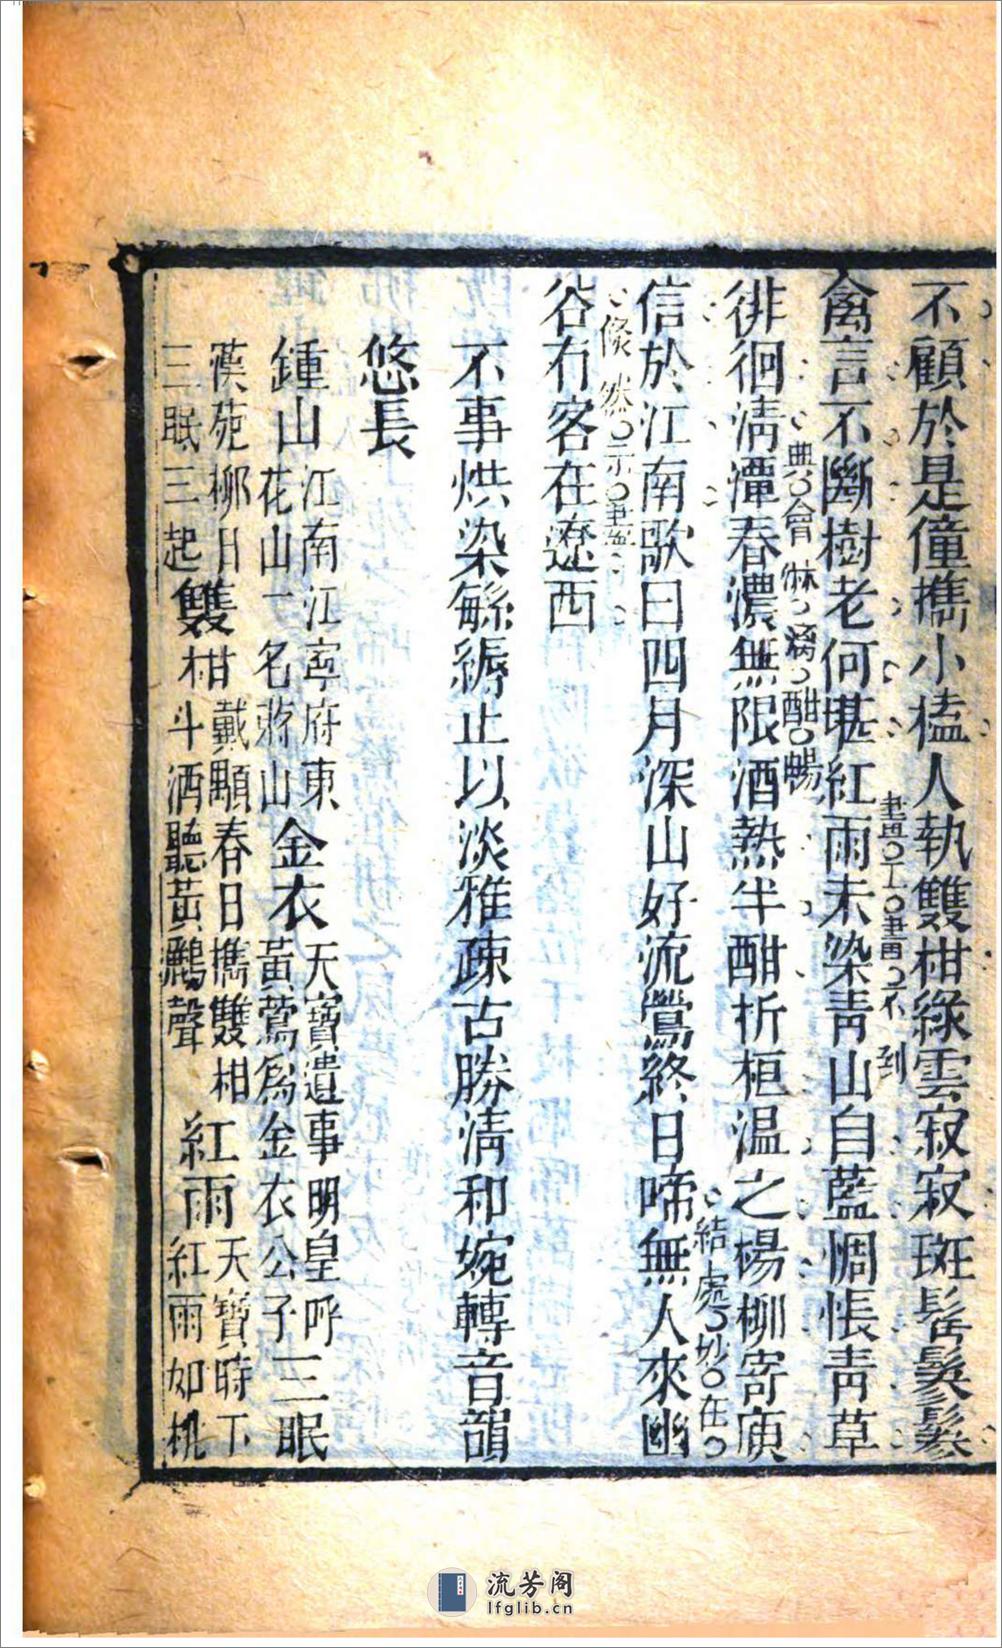 不顧於是僮擕小榼人執雙柑綠雲寂寂斑髩髮鬖
禽言不斷樹老何堪紅雨未染青山自藍惆悵青草
興會淋漓酣暢
徘徊清潭春濃無限酒熱半酣折桓温之楊柳寄庾
信於江南歌曰四月深山好流鶯終日啼無人來幽
結處妙在
谷有客在遼西
不事烘染䋛縟止以淡雅疎古勝清和婉轉音韻
悠長
鍾山 江南江寧府東
花山一名蔣山
金衣 天寶遺事明皇呼
黃鶯爲金衣公子
三眠
漢苑柳日
三眠三起
雙柑 戴顒春日擕雙柑
斗酒聽黃鸝聲
紅雨 天寶時下
紅雨如桃
流芳阁
lfglib.cn